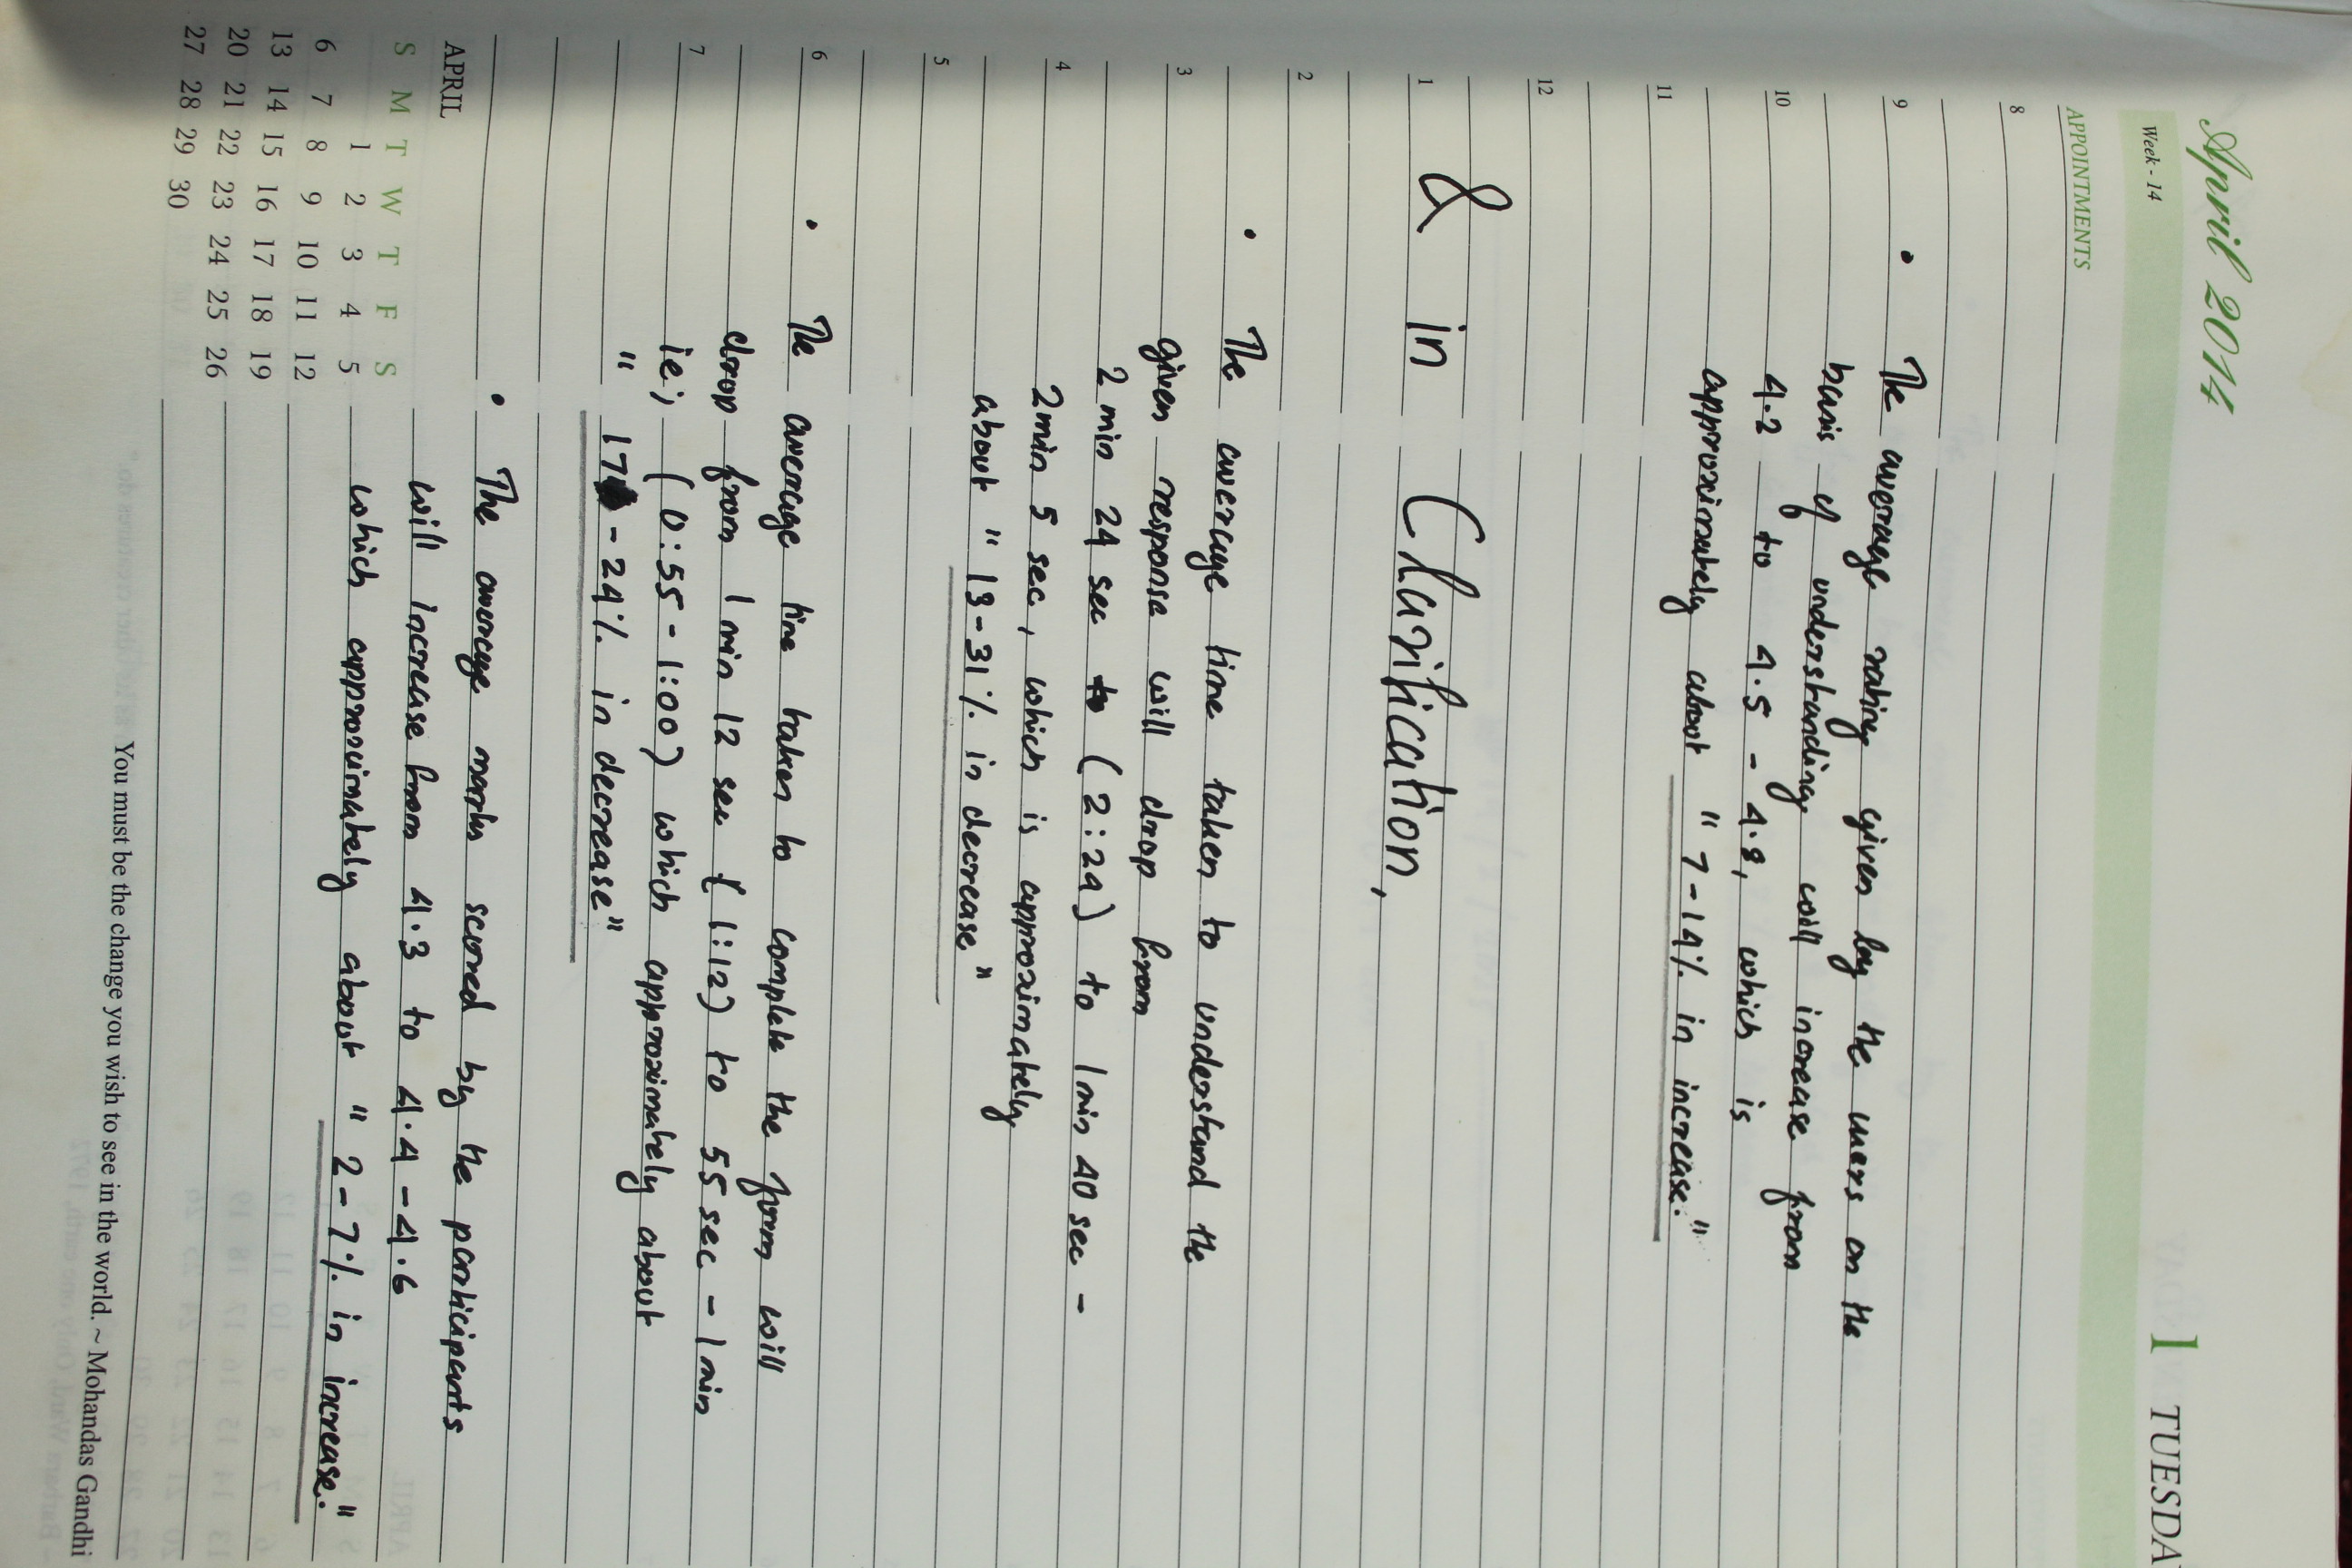 April 2014
1 TUESDA
Week - 14
APPOINTMENTS
8
9
• The average rating given by the users on the
basis of understanding will increase from
10
4.2 to 4.5 - 4.8, which is
approximately about " 7-14% in increase."
11
12
& in Clarification,
1
2
• The average time taken to understand the
3
given response will drop from
2 min 24 sec to (2:24) to 1 min 40 sec -
4
2min 5 sec, which is approximately
about " 13-31% in decrease"
5
6
• The average time taken to complete the form will
drop from 1 min 12 sec ( 1:12) to 55 sec - 1 min
7
ie; (0:55 - 1:00) which approximately about
" 17 - 24% in decrease"
• The average marks scored by the participants
will increase from 4.3 to 4.4 - 4.6
which approximately about " 2-7% in increase."
APRIL
S M T W T F S
1 2 3 4 5
6 7 8 9 10 11 12
13 14 15 16 17 18 19
20 21 22 23 24 25 26
27 28 29 30
You must be the change you wish to see in the world. ~ Mohandas Gandhi